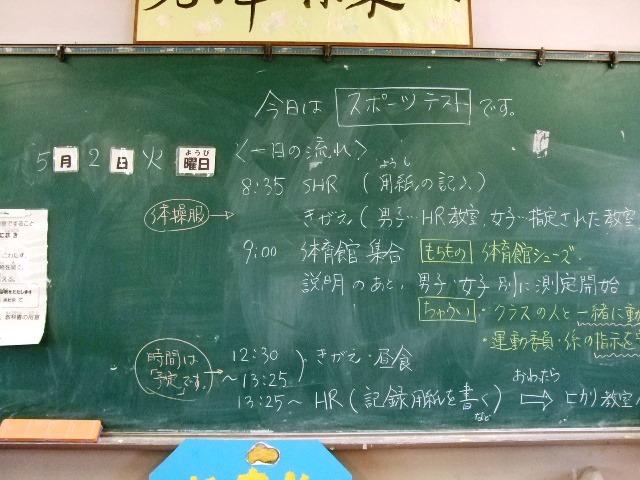 今日は スポーツテスト です。
5 月 2 日 火 曜日
ようび
〈一日の流れ〉
8:35 SHR (用紙の記入)
ようし
体操服 →
きがえ (男子…HR教室、女子…指定された教室
9:00 体育館 集合 もちもの 体育館シューズ.
説明のあと、男子・女子別に測定開始
ちゅうい ・クラスの人と一緒に
・運動委員・係の指示を
時間は「予定」です。→
12:30 〜 13:25 きがえ・昼食
13:25〜 HR (記録用紙を書く など) おわったら ⇒